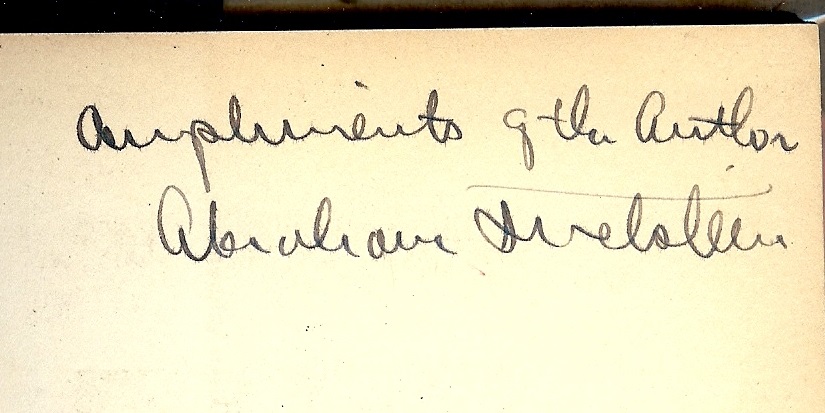 Compliments of the Author
Abraham